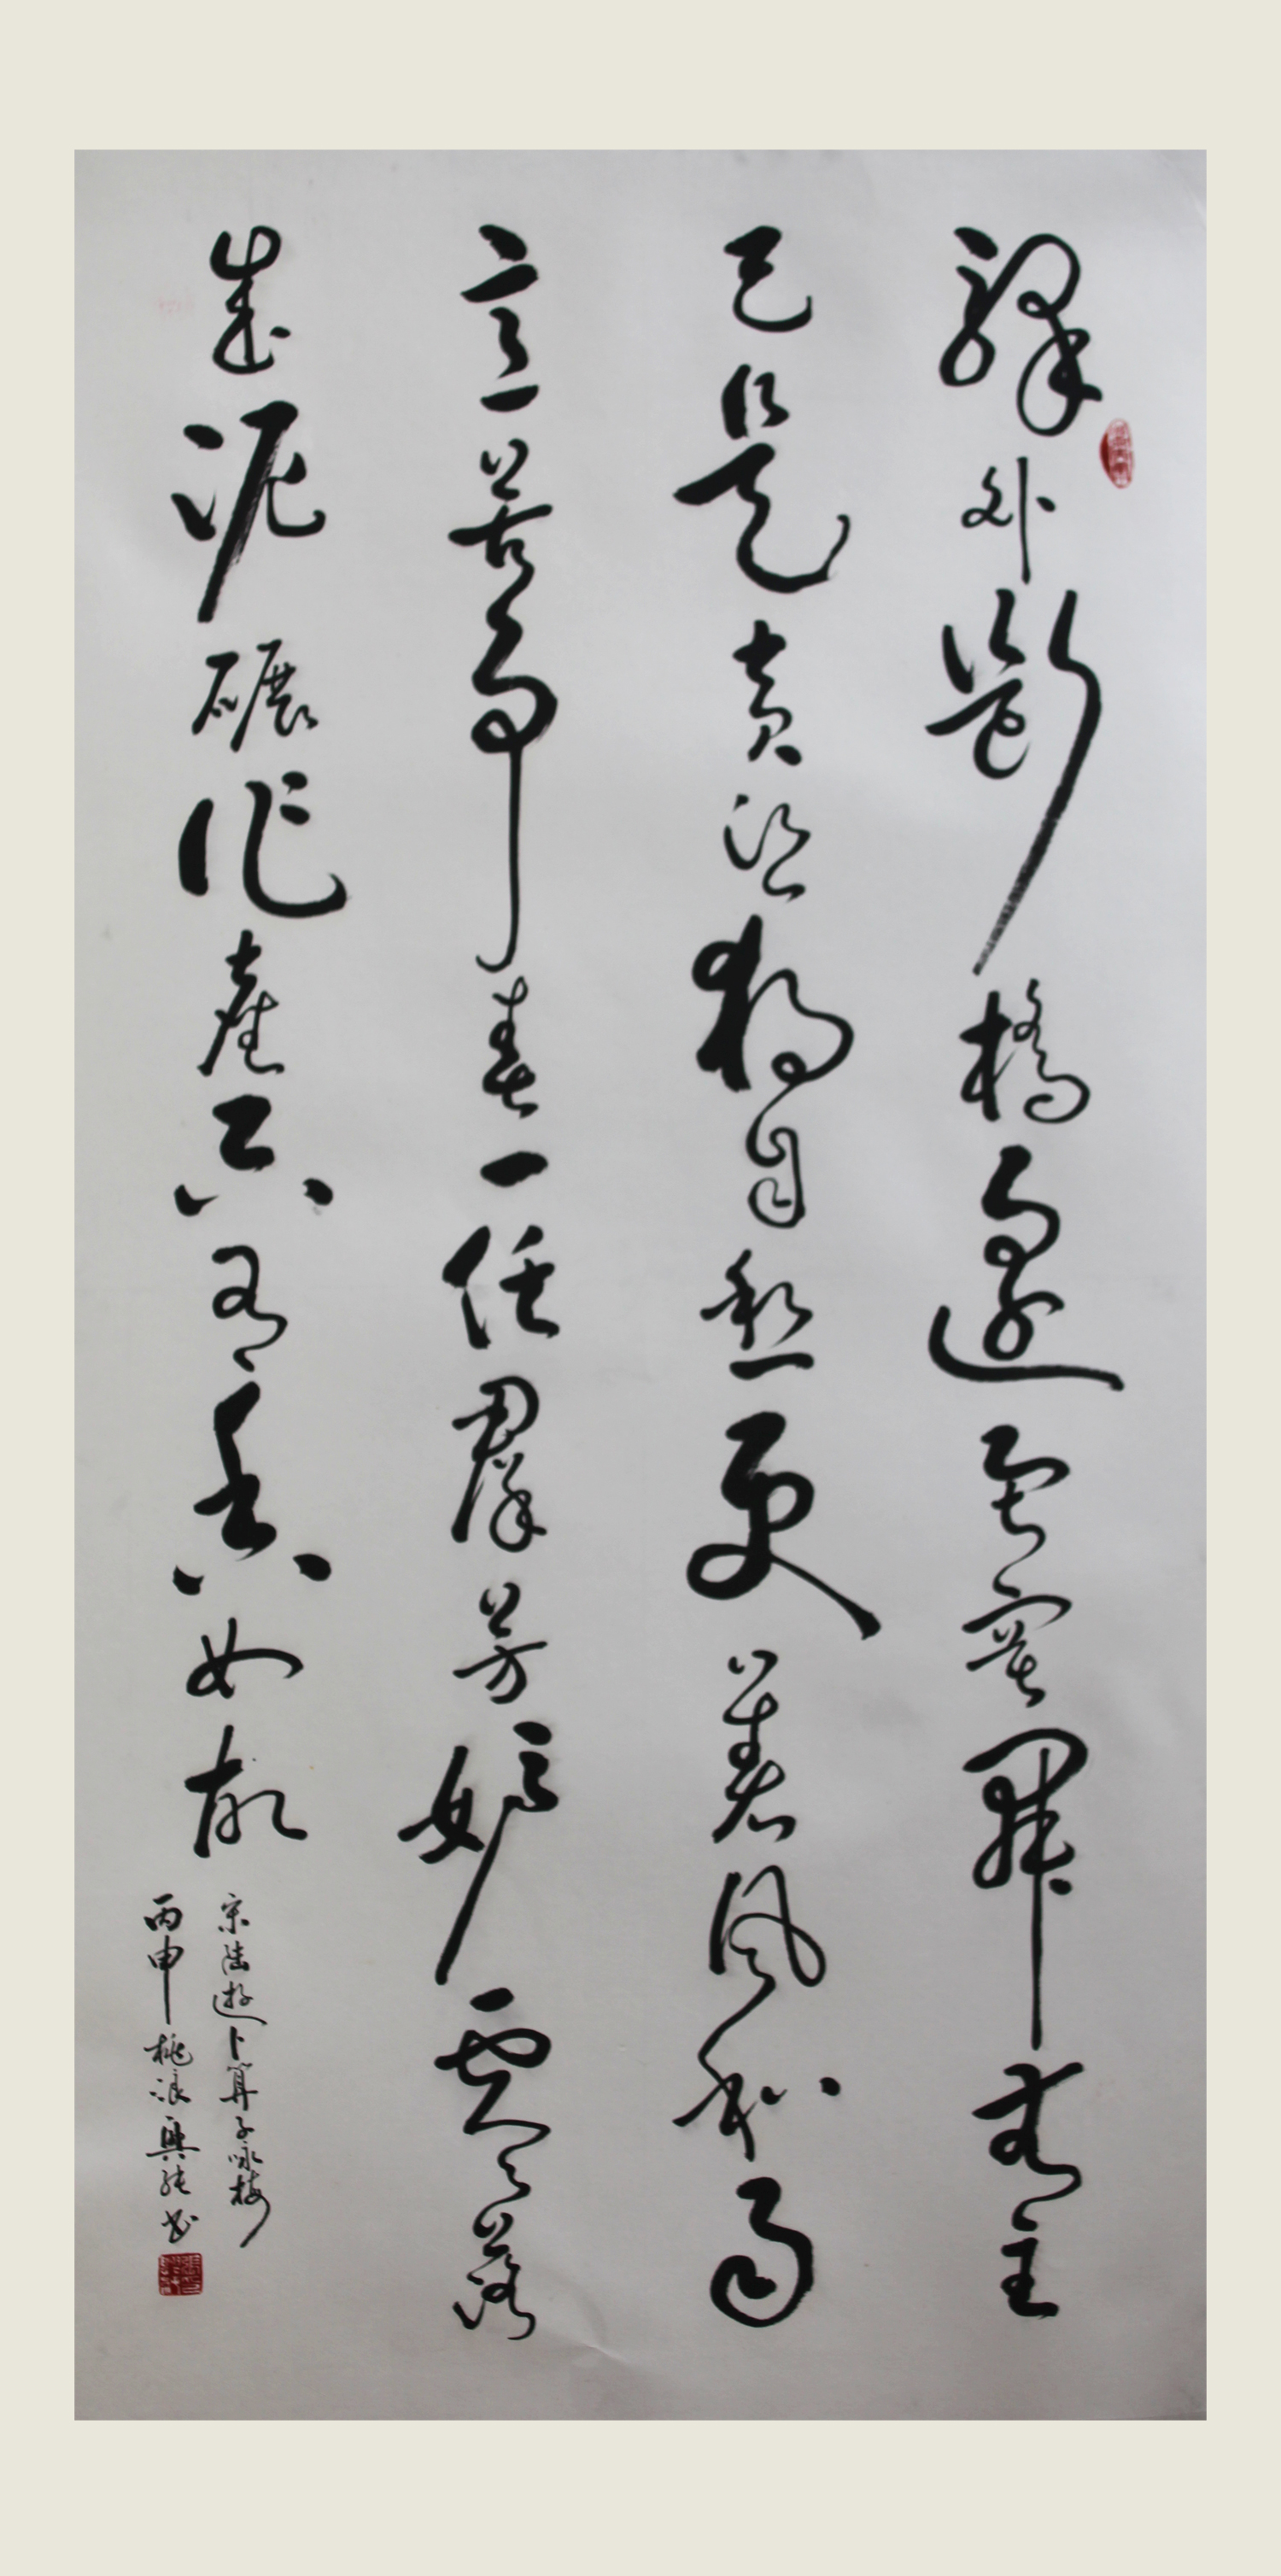 驛外斷橋邊寂寞開無主
已是黃昏獨自愁更著風和雨
無意苦爭春一任群芳妒零落
成泥碾作塵只有香如故
宋陸游卜算子咏梅
丙申桃浪興能書